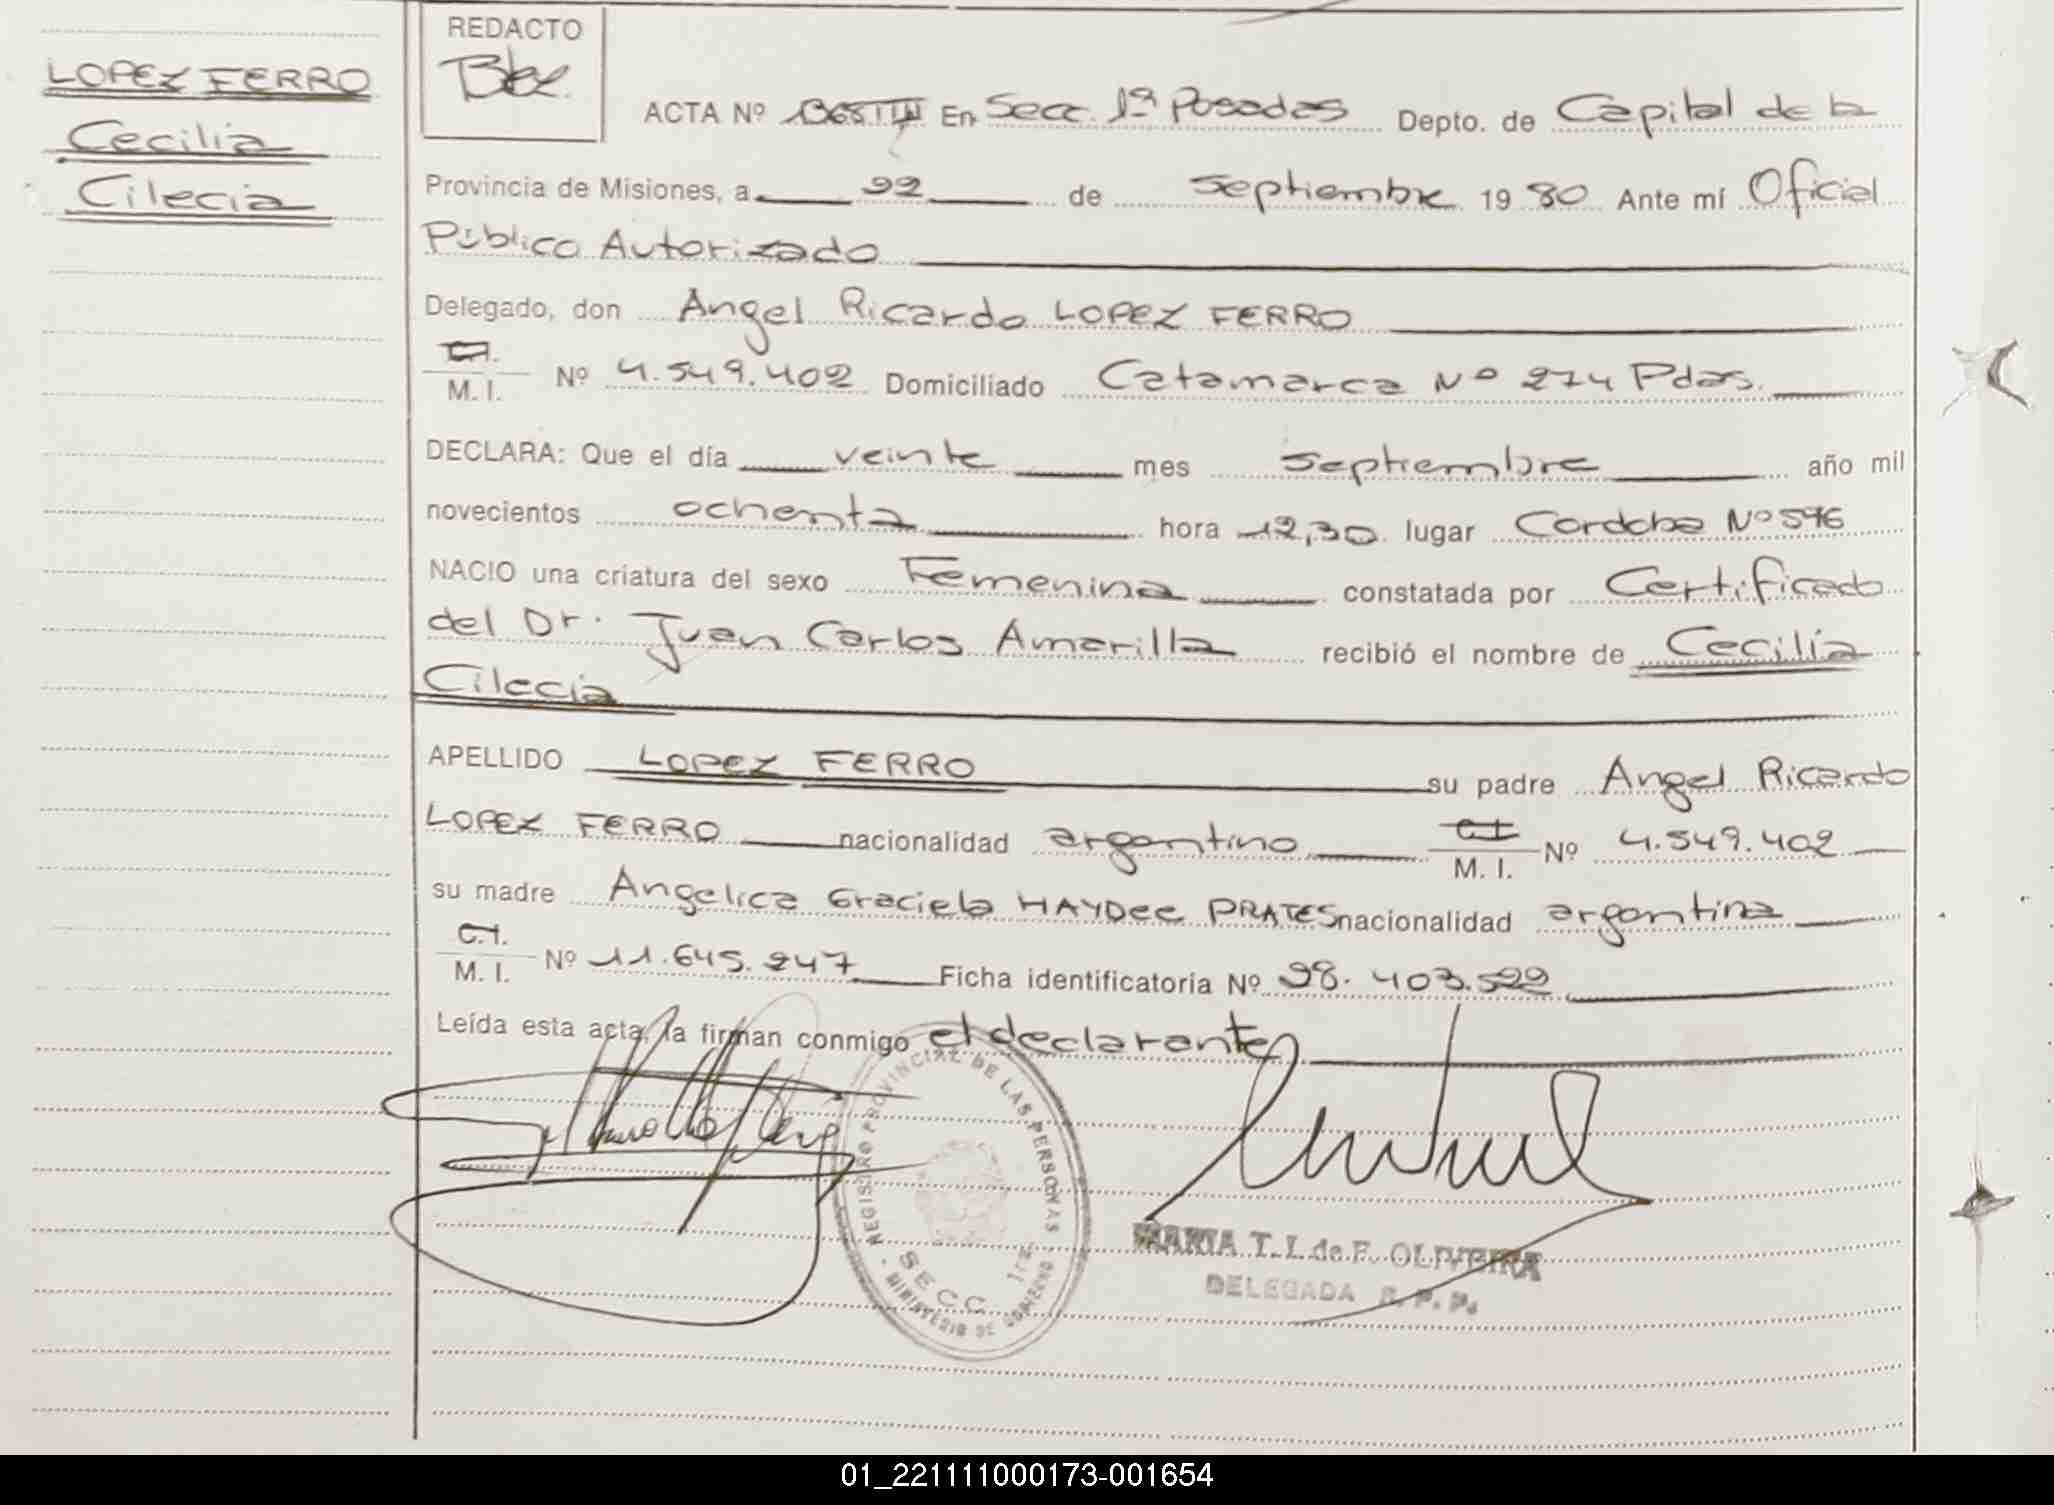 LOPEZ FERRO
Cecilia
Cilecia
REDACTO
ACTA Nº En Secc. 1ª Posadas Depto. de Capital de la
Provincia de Misiones, a 22 de Septiembre 19 80 Ante mí Oficial
Público Autorizado
Delegado, don Angel Ricardo LOPEZ FERRO
C.I.
M. I. Nº 4.549.402 Domiciliado Catamarca Nº 274 Pdas.
DECLARA: Que el día veinte mes Septiembre año mil
novecientos ochenta hora 12,30 lugar Cordoba Nº 546
NACIO una criatura del sexo Femenina constatada por Certificado
del Dr. Juan Carlos Amarilla recibió el nombre de Cecilia
Cilecia
APELLIDO LOPEZ FERRO su padre Angel Ricardo
LOPEZ FERRO nacionalidad argentino C.I. Nº 4.549.402
M. I.
su madre Angelica Graciela HAYDEE PRATES nacionalidad argentina
C.I.
M. I. Nº 11.645.247 Ficha identificatoria Nº 28.403.522
Leída esta acta, la firman conmigo el declarante
REGISTRO PROVINCIAL DE LAS PERSONAS
SECC 1ra
MINISTERIO DE GOBIERNO
MARIA T. I. de F. OLIVEIRA
DELEGADA R. P. P.
01_221111000173-001654